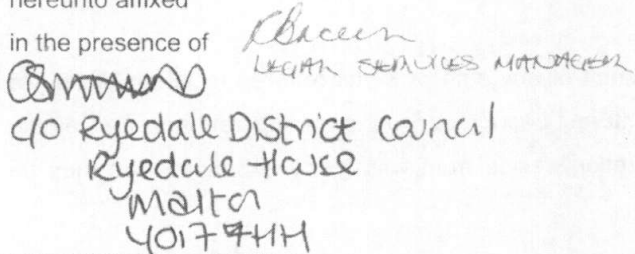 hereunto affixed
in the presence of
LEGAL SERVICES MANAGER
c/o Ryedale District Council
Ryedale House
Malton
YO17 7HH